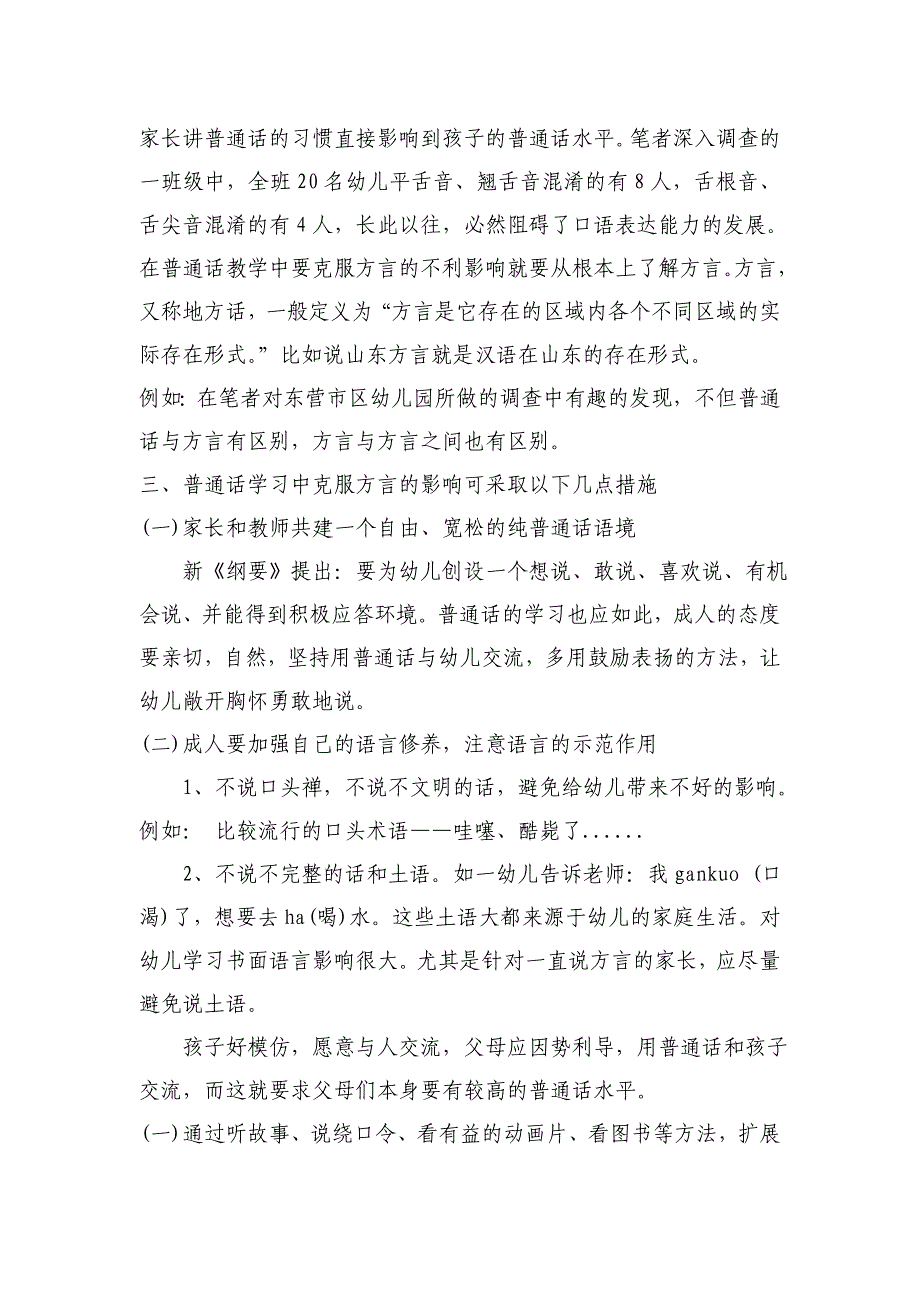 家长讲普通话的习惯直接影响到孩子的普通话水平。笔者深入调查的
一班级中，全班20名幼儿平舌音、翘舌音混淆的有8人，舌根音、
舌尖音混淆的有4人，长此以往，必然阻碍了口语表达能力的发展。
在普通话教学中要克服方言的不利影响就要从根本上了解方言。方言，
又称地方话，一般定义为“方言是它存在的区域内各个不同区域的实
际存在形式。”比如说山东方言就是汉语在山东的存在形式。
例如：在笔者对东营市区幼儿园所做的调查中有趣的发现，不但普通
话与方言有区别，方言与方言之间也有区别。
三、普通话学习中克服方言的影响可采取以下几点措施
(一)家长和教师共建一个自由、宽松的纯普通话语境
新《纲要》提出：要为幼儿创设一个想说、敢说、喜欢说、有机
会说、并能得到积极应答环境。普通话的学习也应如此，成人的态度
要亲切，自然，坚持用普通话与幼儿交流，多用鼓励表扬的方法，让
幼儿敞开胸怀勇敢地说。
(二)成人要加强自己的语言修养，注意语言的示范作用
1、不说口头禅，不说不文明的话，避免给幼儿带来不好的影响。
例如： 比较流行的口头术语——哇噻、酷毙了......
2、不说不完整的话和土语。如一幼儿告诉老师：我gankuo (口
渴)了，想要去ha(喝)水。这些土语大都来源于幼儿的家庭生活。对
幼儿学习书面语言影响很大。尤其是针对一直说方言的家长，应尽量
避免说土语。
孩子好模仿，愿意与人交流，父母应因势利导，用普通话和孩子
交流，而这就要求父母们本身要有较高的普通话水平。
(一)通过听故事、说绕口令、看有益的动画片、看图书等方法，扩展